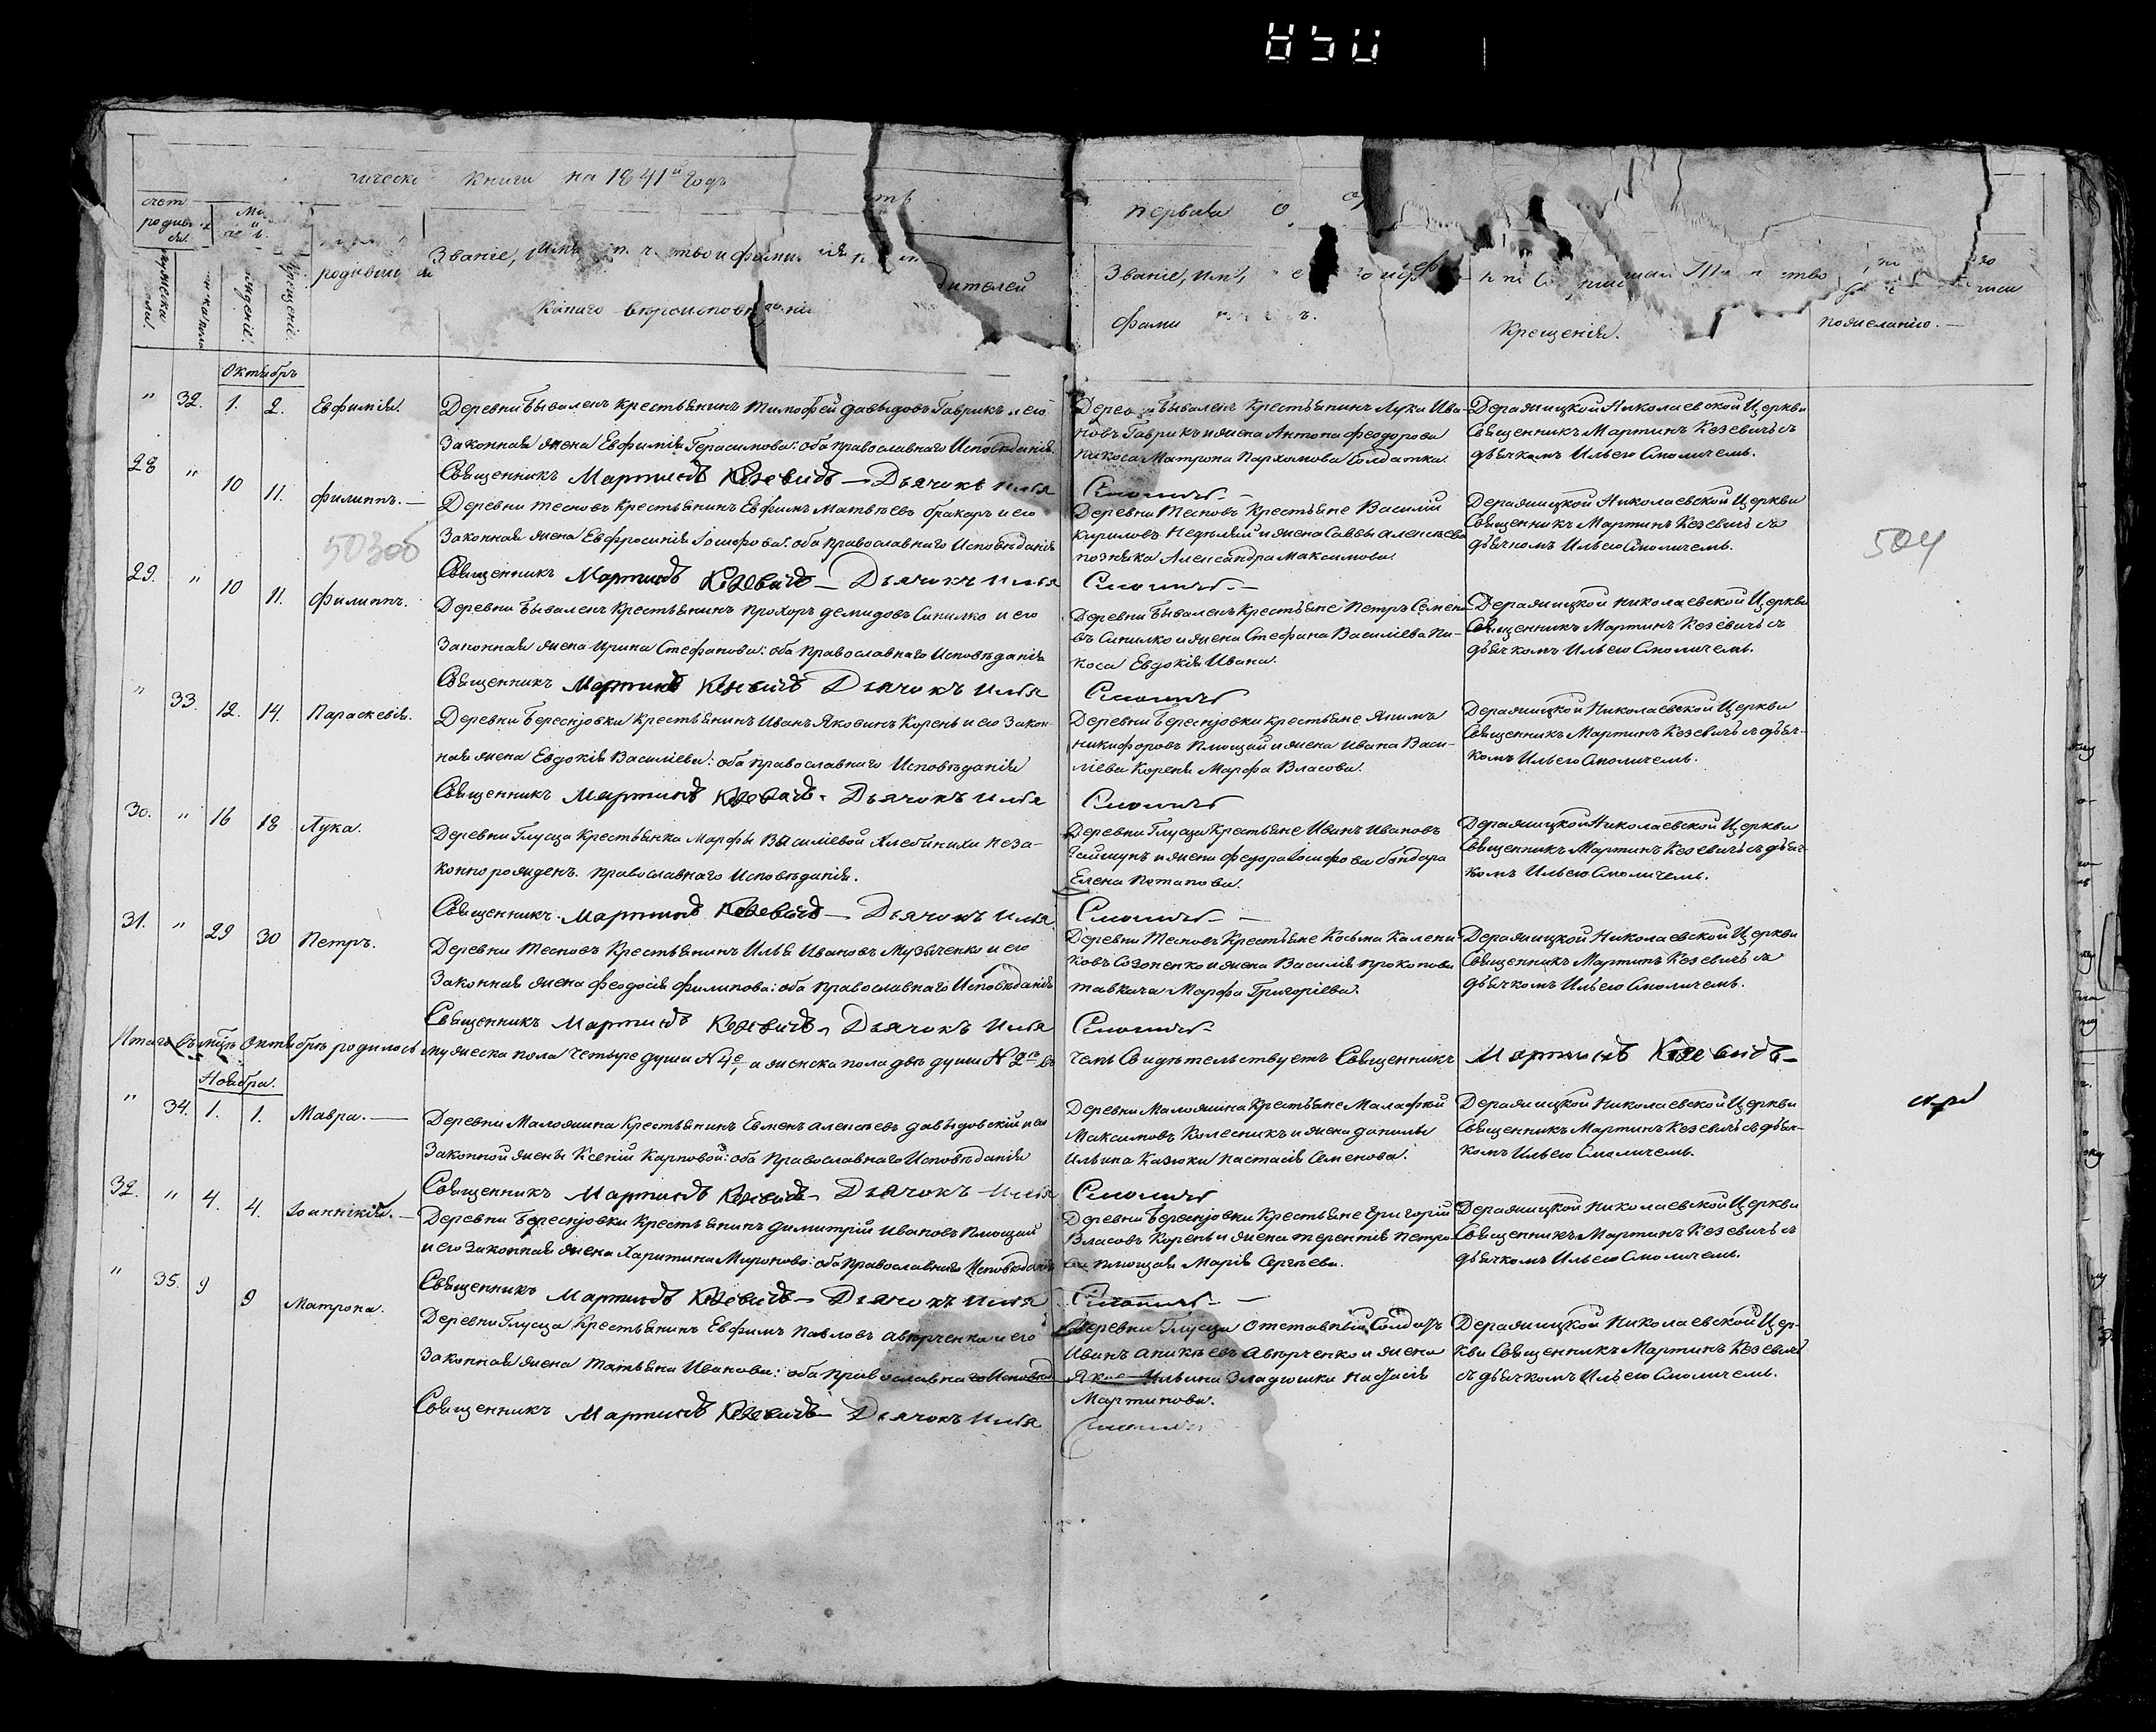 книги на 1841й годъ
счет родив
Званіе,
родивши
дителей
какаго вероисповѣданія
первая о
Званіе, им
Крещенія.
по желанію.
Октябрь
" 32. 1. 2. Евфимія.
Деревни Бывалекъ Крестьянинъ Тимофей Давыдовъ Гаврикъ и его
Законная жена Евфимія Герасимова: оба православнаго Исповѣданія.
Священникъ Мартинъ Кезевичъ — Дьячокъ Илья
Деревни Бывалекъ Крестьянинъ Лука Ива-
новъ Гаврикъ и жена Антона Феодорова
Пикоса Матрона Пархомова Солдатка.
Смоличъ —
Деражицкой Николаевской Церкви
Священникъ Мартинъ Кезевичъ съ
дьячкомъ Ильею Смоличемъ.
28 " 10 11. Филиппъ. —
503об
Деревни Тесновъ Крестьянинъ Евфимъ Матвѣевъ и его
Законная жена Евфросинія Іосифова: оба православнаго Исповѣданія
Священникъ Мартинъ Кезевичъ — Дьячокъ Илья
Деревни Тесновъ Крестьяне Василій
Кириловъ и жена Саввы Алексѣева
позняка Александра Максимова.
Смоличъ —
Деражицкой Николаевской Церкви
Священникъ Мартинъ Кезевичъ съ
дьячкомъ Ильею Смоличемъ.
504
29. " 10 11. Филиппъ.
Деревни Бывалекъ Крестьянинъ Прохоръ Демидовъ Синилко и его
Законная жена Ирина Стефанова: оба Православнаго Исповѣданія
Священникъ Мартинъ Кезевичъ Дьячокъ Илья
Деревни Бывалекъ Крестьяне Петръ Семено-
въ Синилко и жена Стефана Василіева Пи-
коса Евдокія Ивана.
Смоличъ
Деражицкой Николаевской Церкви
Священникъ Мартинъ Кезевичъ съ
дьячкомъ Ильею Смоличемъ.
" 33. 12. 14. Параскевія.
Деревни Крестьянинъ Иванъ Яковинъ Корень и его Закон-
ная жена Евдокія Василіева: оба Православнаго Исповѣданія
Священникъ Мартинъ Кезевичъ. Дьячокъ Илья
Деревни крестьяне Якимъ
Никифоровъ Плющай и жена Ивана Васи-
ліева Кореня Марфа Власова.
Смоличъ
Деражицкой Николаевской Церкви
Священникъ Мартинъ Кезевичъ съ дьяч-
комъ Ильею Смоличемъ.
30. " 16 18 Лука.
Деревни Глусца Крестьянка Марфы Василіевой неза-
конно рожденъ. Православнаго Исповѣданія.
Священникъ. Мартинъ Кезевичъ — Дьячокъ Илья
Деревни Глусца Крестьяне Иванъ Ивановъ
и жена Федора Іосифова бондара
Елена Потапова.
Смоличъ —
Деражицкой Николаевской Церкви
Священникъ Мартинъ Кезевичъ съ дьяч-
комъ Ильею Смоличемъ.
31. " 29 30 Петръ.
Деревни Тесновъ Крестьянинъ Илья Ивановъ Музыченко и его
Законная жена Феодосія Филипова: оба Православнаго Исповѣданія
Священникъ Мартинъ Кезевичъ, Дьячокъ Илья
Деревни Тесновъ Крестьяне Косьма Калени-
ковъ Созоненко и жена Василія Прокопова
Марфа Григоріева.
Смоличъ
Деражицкой Николаевской Церкви
Священникъ Мартинъ Кезевичъ съ
дьячкомъ Ильею Смоличемъ.
Итого въ мцѣ Октябрѣ родилось мужеска пола четыре души № 4е, а женска пола двѣ души № 2е въ чемъ Свидѣтельствуетъ Священникъ Мартинъ Кезевичъ —
Ноября.
" 34. 1. 1. Мавра. —
Деревни Маложина Крестьянинъ Евменъ Алексѣевъ Давыдовскій и его
Законной жены Ксеніи Карповой: оба Православнаго Исповѣданія
Священникъ Мартинъ Кезевичъ — Дьячокъ Илья
Деревни Маложина Крестьяне Малафей
Максимовъ Колесникъ и жена Данилы
Ильина Казюки Настасія Семенова.
Смоличъ
Деражицкой Николаевской Церкви
Священникъ Мартинъ Кезевичъ съ дьяч-
комъ Ильею Смоличемъ.
32. " 4. 4. Іоанникій. —
Деревни Крестьянинъ Димитрій Ивановъ Плющай
и его Законная жена Харитина Миронова: оба Православнаго Исповѣданія
Священникъ Мартинъ Кезевичъ — Дьячокъ Илья
Деревни Крестьяне Григорій
Власовъ Корень и жена Терентія Петро-
ва Плющая Марія Сергѣева.
Смоличъ —
Деражицкой Николаевской Церкви
Священникъ Мартинъ Кезевичъ съ
дьячкомъ Ильею Смоличемъ.
" 35. 9 9 Матрона.
Деревни Глусца Крестьянинъ Евфимъ Павловъ Аверченко и его
Законная жена Татьяна Иванова: оба Православнаго Исповѣд
Священникъ Мартинъ Кезевичъ — Дьячокъ Илья
Деревни Глусца Отставный Солдатъ
Иванъ Аникѣевъ Аверченко и жена
Ильина Настасія
Мартинова.
Смоличъ
Деражицкой Николаевской Цер-
кви Священникъ Мартинъ Кезевичъ
съ дьячкомъ Ильею Смоличемъ.